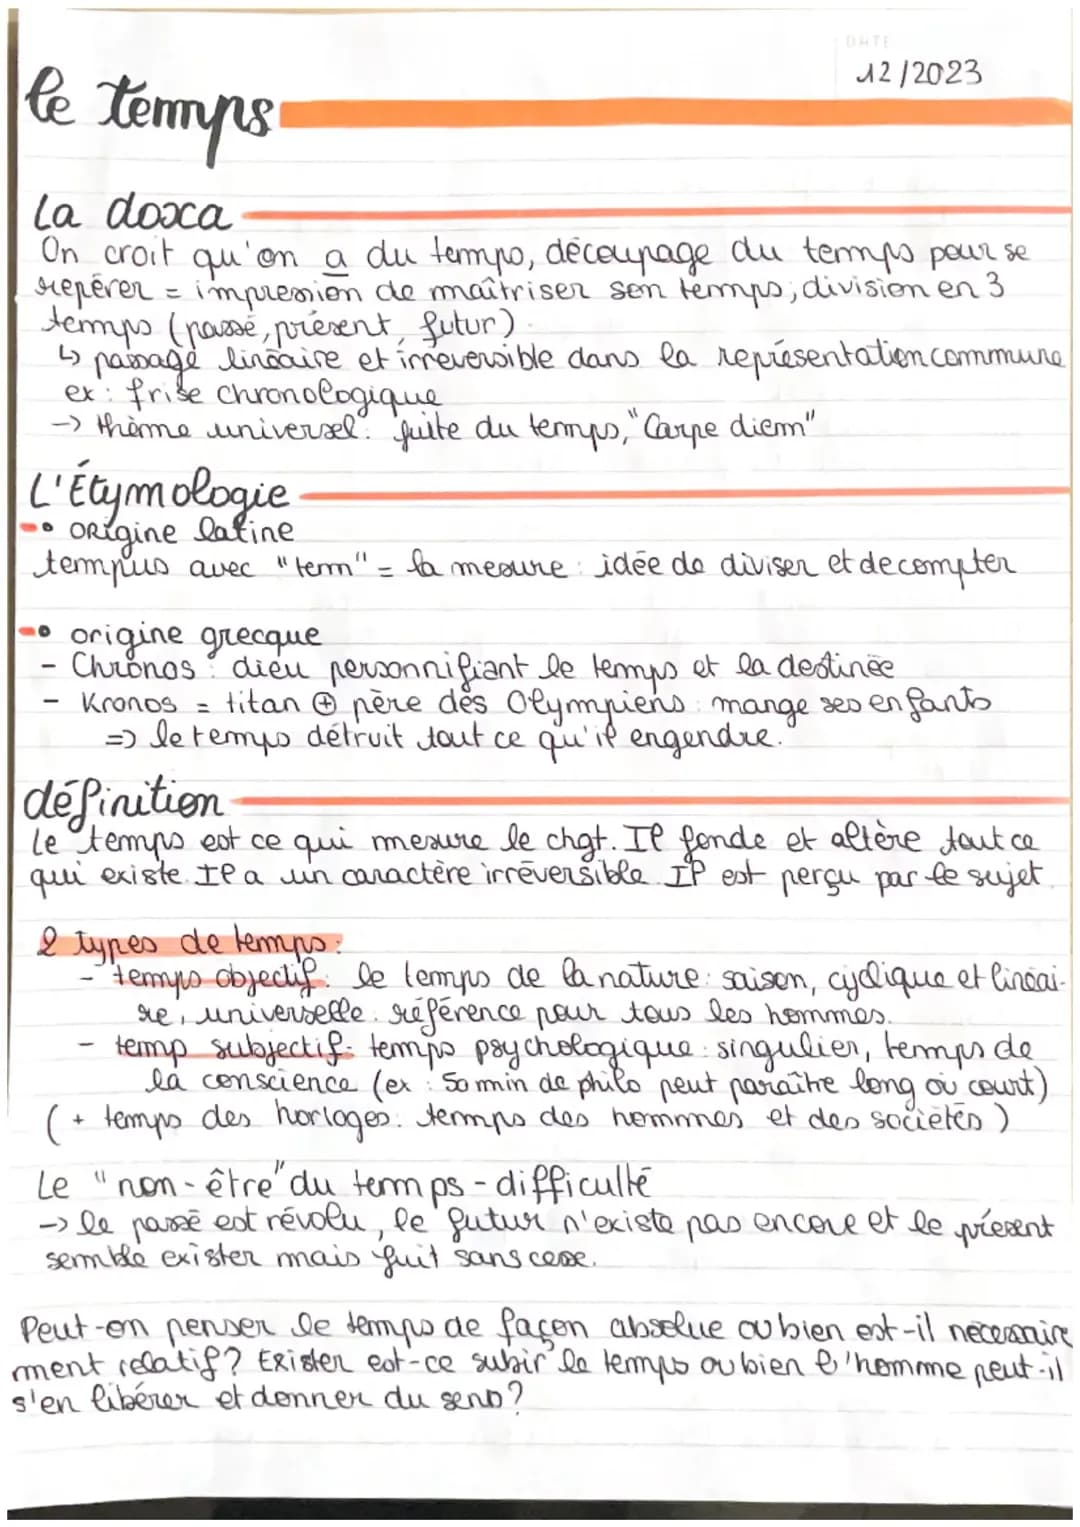 DATE
12/2023
le temps
La doxa
On croit qu'on a du temps, découpage du temps pour se
repérer = impression de maîtriser son temps, division en 3
temps (passé, présent, futur).
↳ passage linéaire et irréversible dans la représentation commune
ex : frise chronologique
-> thème universel : fuite du temps, "Carpe diem"
L'Étymologie
• origine latine
tempus avec "tem" = la mesure : idée de diviser et decompter
• origine grecque
- Chronos : dieu personnifiant le temps et la destinée
- Kronos = titan ⊕ père des Olympiens : mange ses enfants
=> le temps détruit tout ce qu'il engendre.
définition
Le temps est ce qui mesure le chgt. Il fonde et altère tout ce
qui existe. Il a un caractère irréversible. Il est perçu par le sujet.
2 types de temps :
- temps objectif : le temps de la nature : saison, cyclique et linéai-
re, universelle : référence pour tous les hommes.
- temp subjectif : temps psychologique : singulier, temps de
la conscience (ex : 50 min de philo peut paraître long ou court)
( + temps des horloges : temps des hommes et des sociétés )
Le "non-être" du temps - difficulté
-> le passé est révolu, le futur n'existe pas encore et le présent
semble exister mais fuit sans cesse.
Peut-on penser le temps de façon absolue ou bien est-il necessaire
ment relatif ? Exister est-ce subir le temps ou bien l'homme peut-il
s'en libérer et donner du sens ?